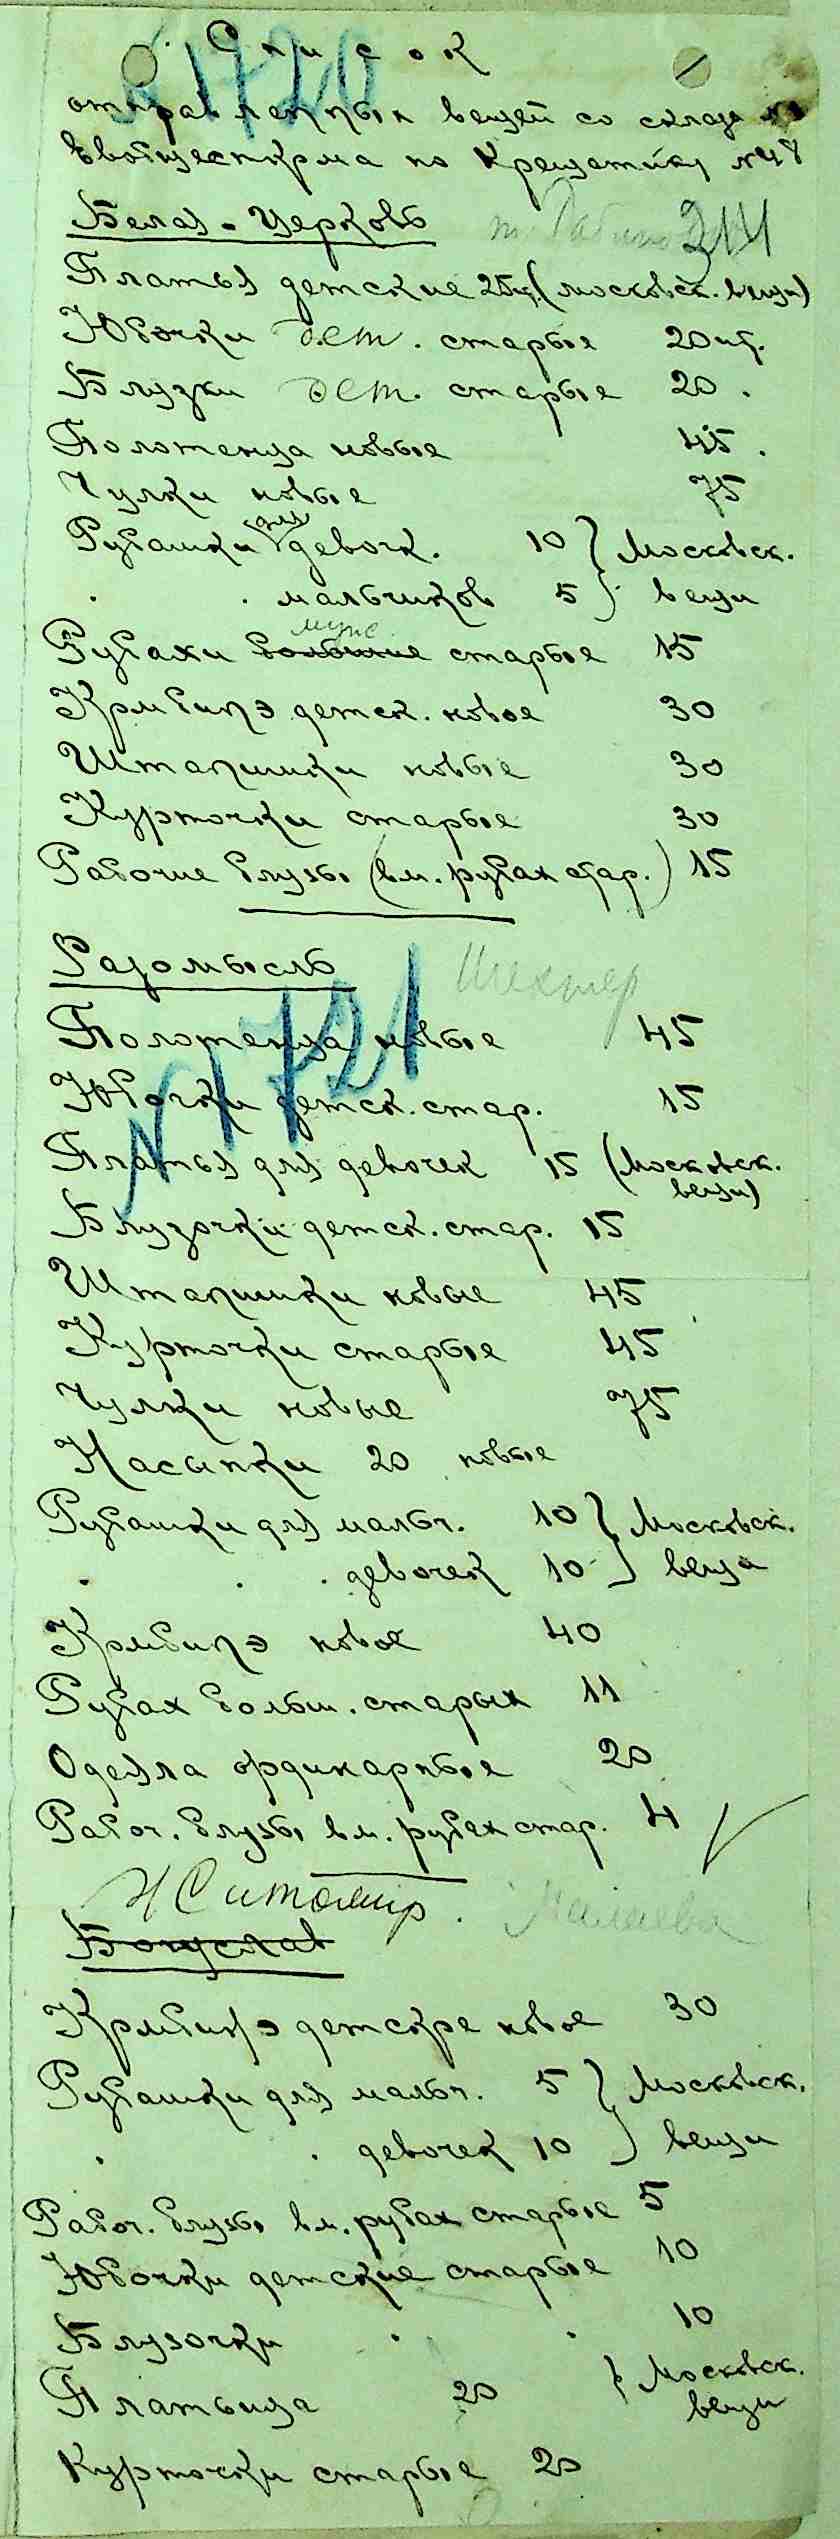 Список
отправленных вещей со склада №1
Евобщесткома по Крещатику №48
Белая-Церковь 314
Платья детские 25шт. (московск. вещи)
Юбочки дет. старые 20шт.
Блузки дет. старые 20.
Полотенца новые 45.
Чулки новые 75
Рубашки для девочк. 10 } Московск.
" " мальчиков 5 } вещи
Рубахи большие муж. старые 15
Комбинэ детск. новое 30
Штанишки новые 30
Курточки старые 30
Рабочие блузы (вм. рубах стар.) 15
№1720
Радомысль Шехтер
Полотенца новые 45
Юбочки детск. стар. 15
Платья для девочек 15 (Московск.
вещи)
№1721
Блузочки детск. стар. 15
Штанишки новые 45
Курточки старые 45
Чулки новые 75
Насыпки 20 новые
Рубашки для мальч. 10 } Московск.
" " девочек 10 } вещи
Комбинэ новое 40
Рубах больш. старых 11
Одеяла ординарные 20
Рабоч. блузы вм. рубах стар. 4
Житомир.
Богуслав
Комбинэ детское новое 30
Рубашки для мальч. 5 } Московск.
" " девочек 10 } вещи
Рабоч. блузы вм. рубах старые 5
Юбочки детские старые 10
Блузочки " " 10
Платьица 20 } Московск.
вещи
Курточки старые 20